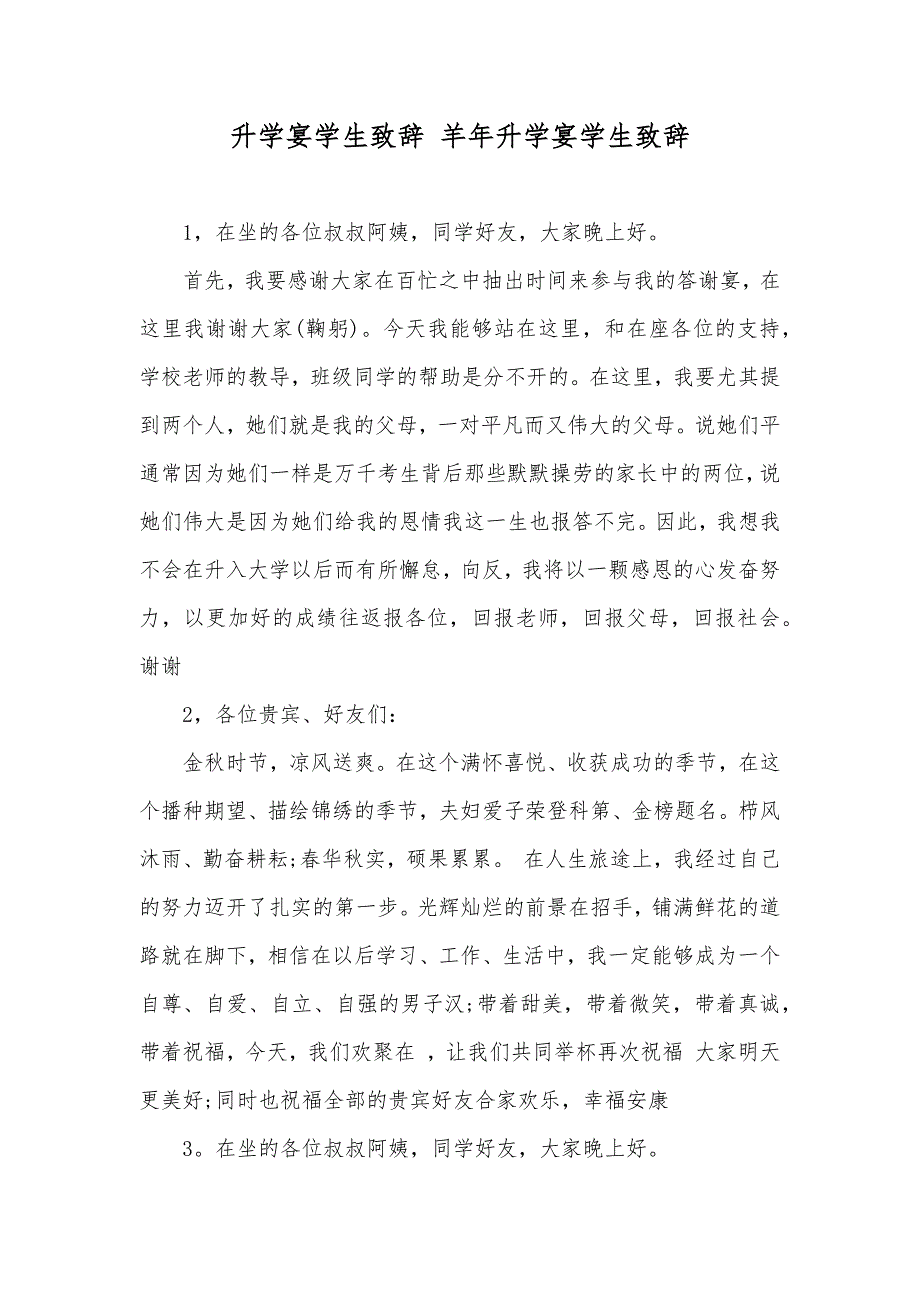 升学宴学生致辞 羊年升学宴学生致辞
1，在坐的各位叔叔阿姨，同学好友，大家晚上好。
首先，我要感谢大家在百忙之中抽出时间来参与我的答谢宴，在
这里我谢谢大家(鞠躬)。今天我能够站在这里，和在座各位的支持，
学校老师的教导，班级同学的帮助是分不开的。在这里，我要尤其提
到两个人，她们就是我的父母，一对平凡而又伟大的父母。说她们平
通常因为她们一样是万千考生背后那些默默操劳的家长中的两位，说
她们伟大是因为她们给我的恩情我这一生也报答不完。因此，我想我
不会在升入大学以后而有所懈怠，向反，我将以一颗感恩的心发奋努
力，以更加好的成绩往返报各位，回报老师，回报父母，回报社会。
谢谢
2，各位贵宾、好友们：
金秋时节，凉风送爽。在这个满怀喜悦、收获成功的季节，在这
个播种期望、描绘锦绣的季节，夫妇爱子荣登科第、金榜题名。栉风
沐雨、勤奋耕耘;春华秋实，硕果累累。 在人生旅途上，我经过自己
的努力迈开了扎实的第一步。光辉灿烂的前景在招手，铺满鲜花的道
路就在脚下，相信在以后学习、工作、生活中，我一定能够成为一个
自尊、自爱、自立、自强的男子汉;带着甜美，带着微笑，带着真诚，
带着祝福，今天，我们欢聚在 ，让我们共同举杯再次祝福 大家明天
更美好;同时也祝福全部的贵宾好友合家欢乐，幸福安康
3。在坐的各位叔叔阿姨，同学好友，大家晚上好。